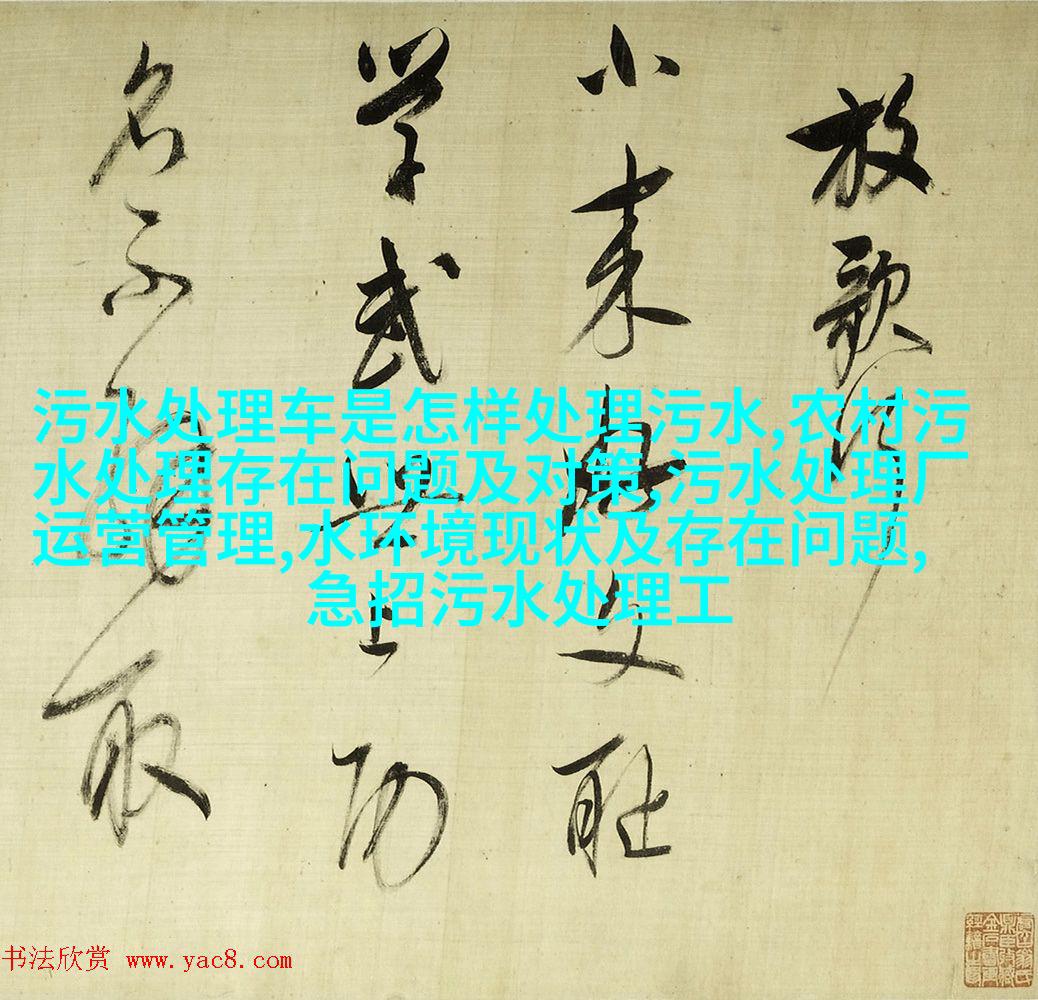 放歌行
小来好文耻
学武世上功
名不解取
污水处理车是怎样处理污水,农村污
水处理存在问题及对策,污水处理厂
运营管理,水环境现状及存在问题,
急招污水处理工
书法欣赏 www.yac8.com